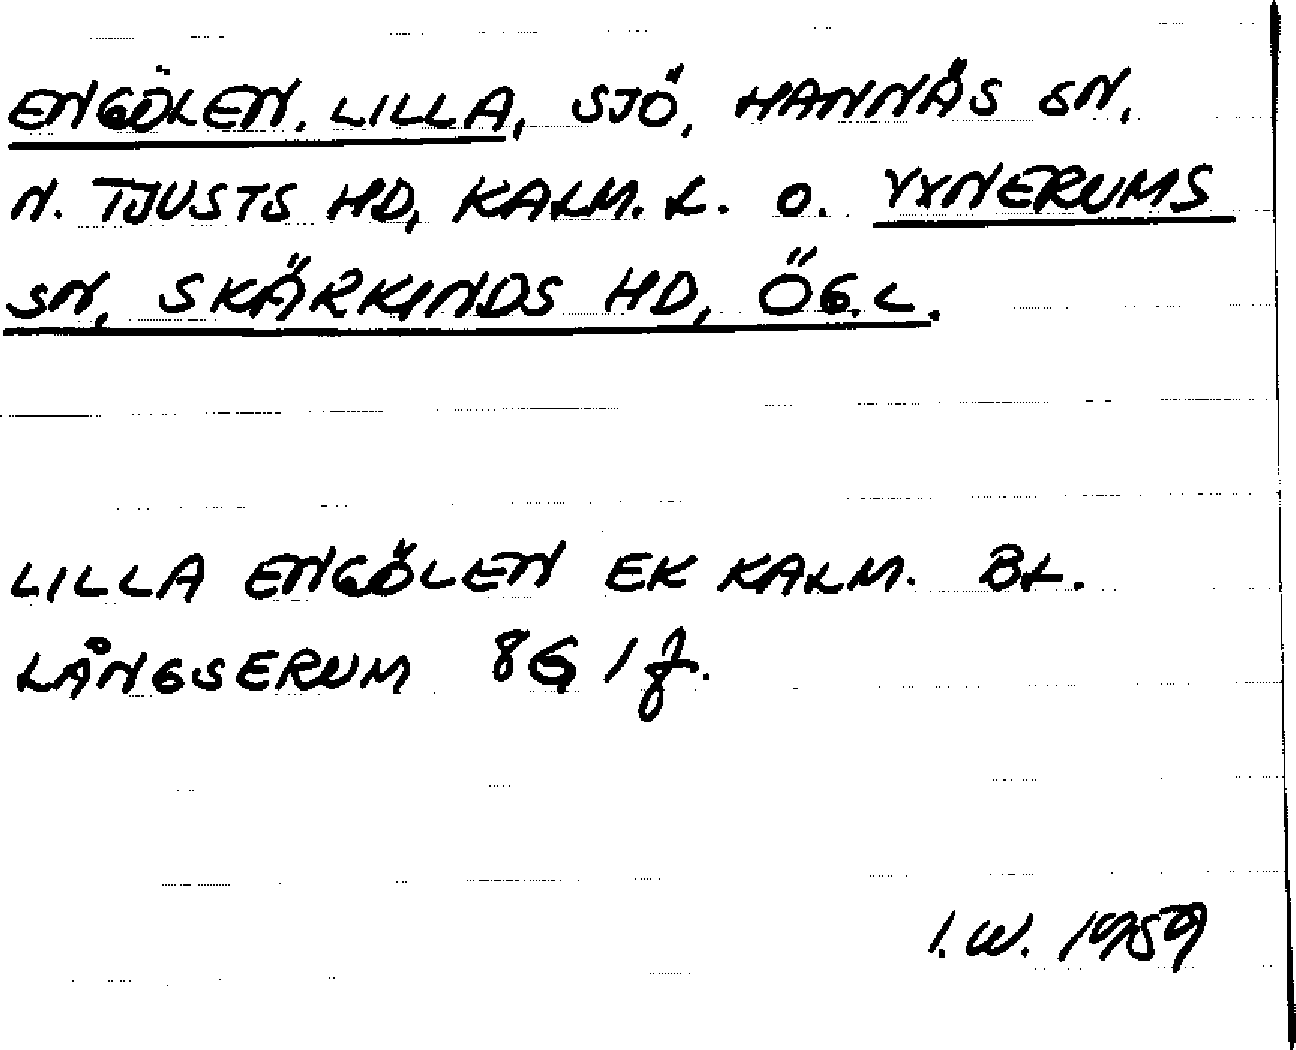 ENGÖLEN, LILLA, SJÖ, HANNÄS SN,
N. TJUSTS HD, KALM. L. O. YXNERUMS
SN, SKÄRKINDS HD, ÖG.L.
LILLA ENGÖLEN EK KALM. BL.
LÅNGSERUM 8G 1 f.
I.W. 1959